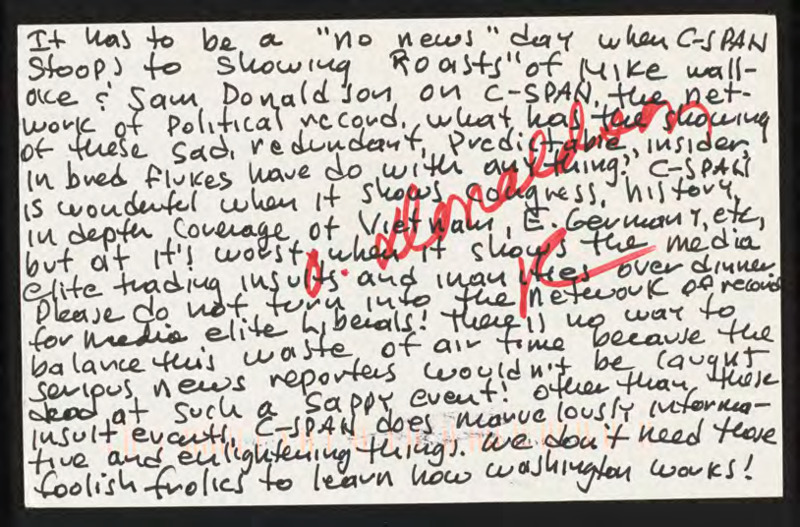 It has to be a "no news" day when C-SPAN
Stoops to showing Roasts" of Mike wall-
ace & Sam Donaldson on C-SPAN, the net-
work of Political record. what has the showing
of these sad, redundant, Predictable insider,
In bred flukes have do with anything? C-SPAN
is wonderful when it shows congress, history,
in depth coverage of Vietnam, E. Germany, etc,
but at it's worst when it shows the media
elite trading insults and inanities over dinner.
Please do not turn into the Network of record
for media elite Liberals! There is no way to
balance this waste of air time because the
serious news reporters wouldn't be caught
dead at such a sappy event! other than these
insult events, C-SPAN does marvelously informa-
tive and enlightening things. We don't need these
foolish frolics to learn how washington works!
Donaldson
K